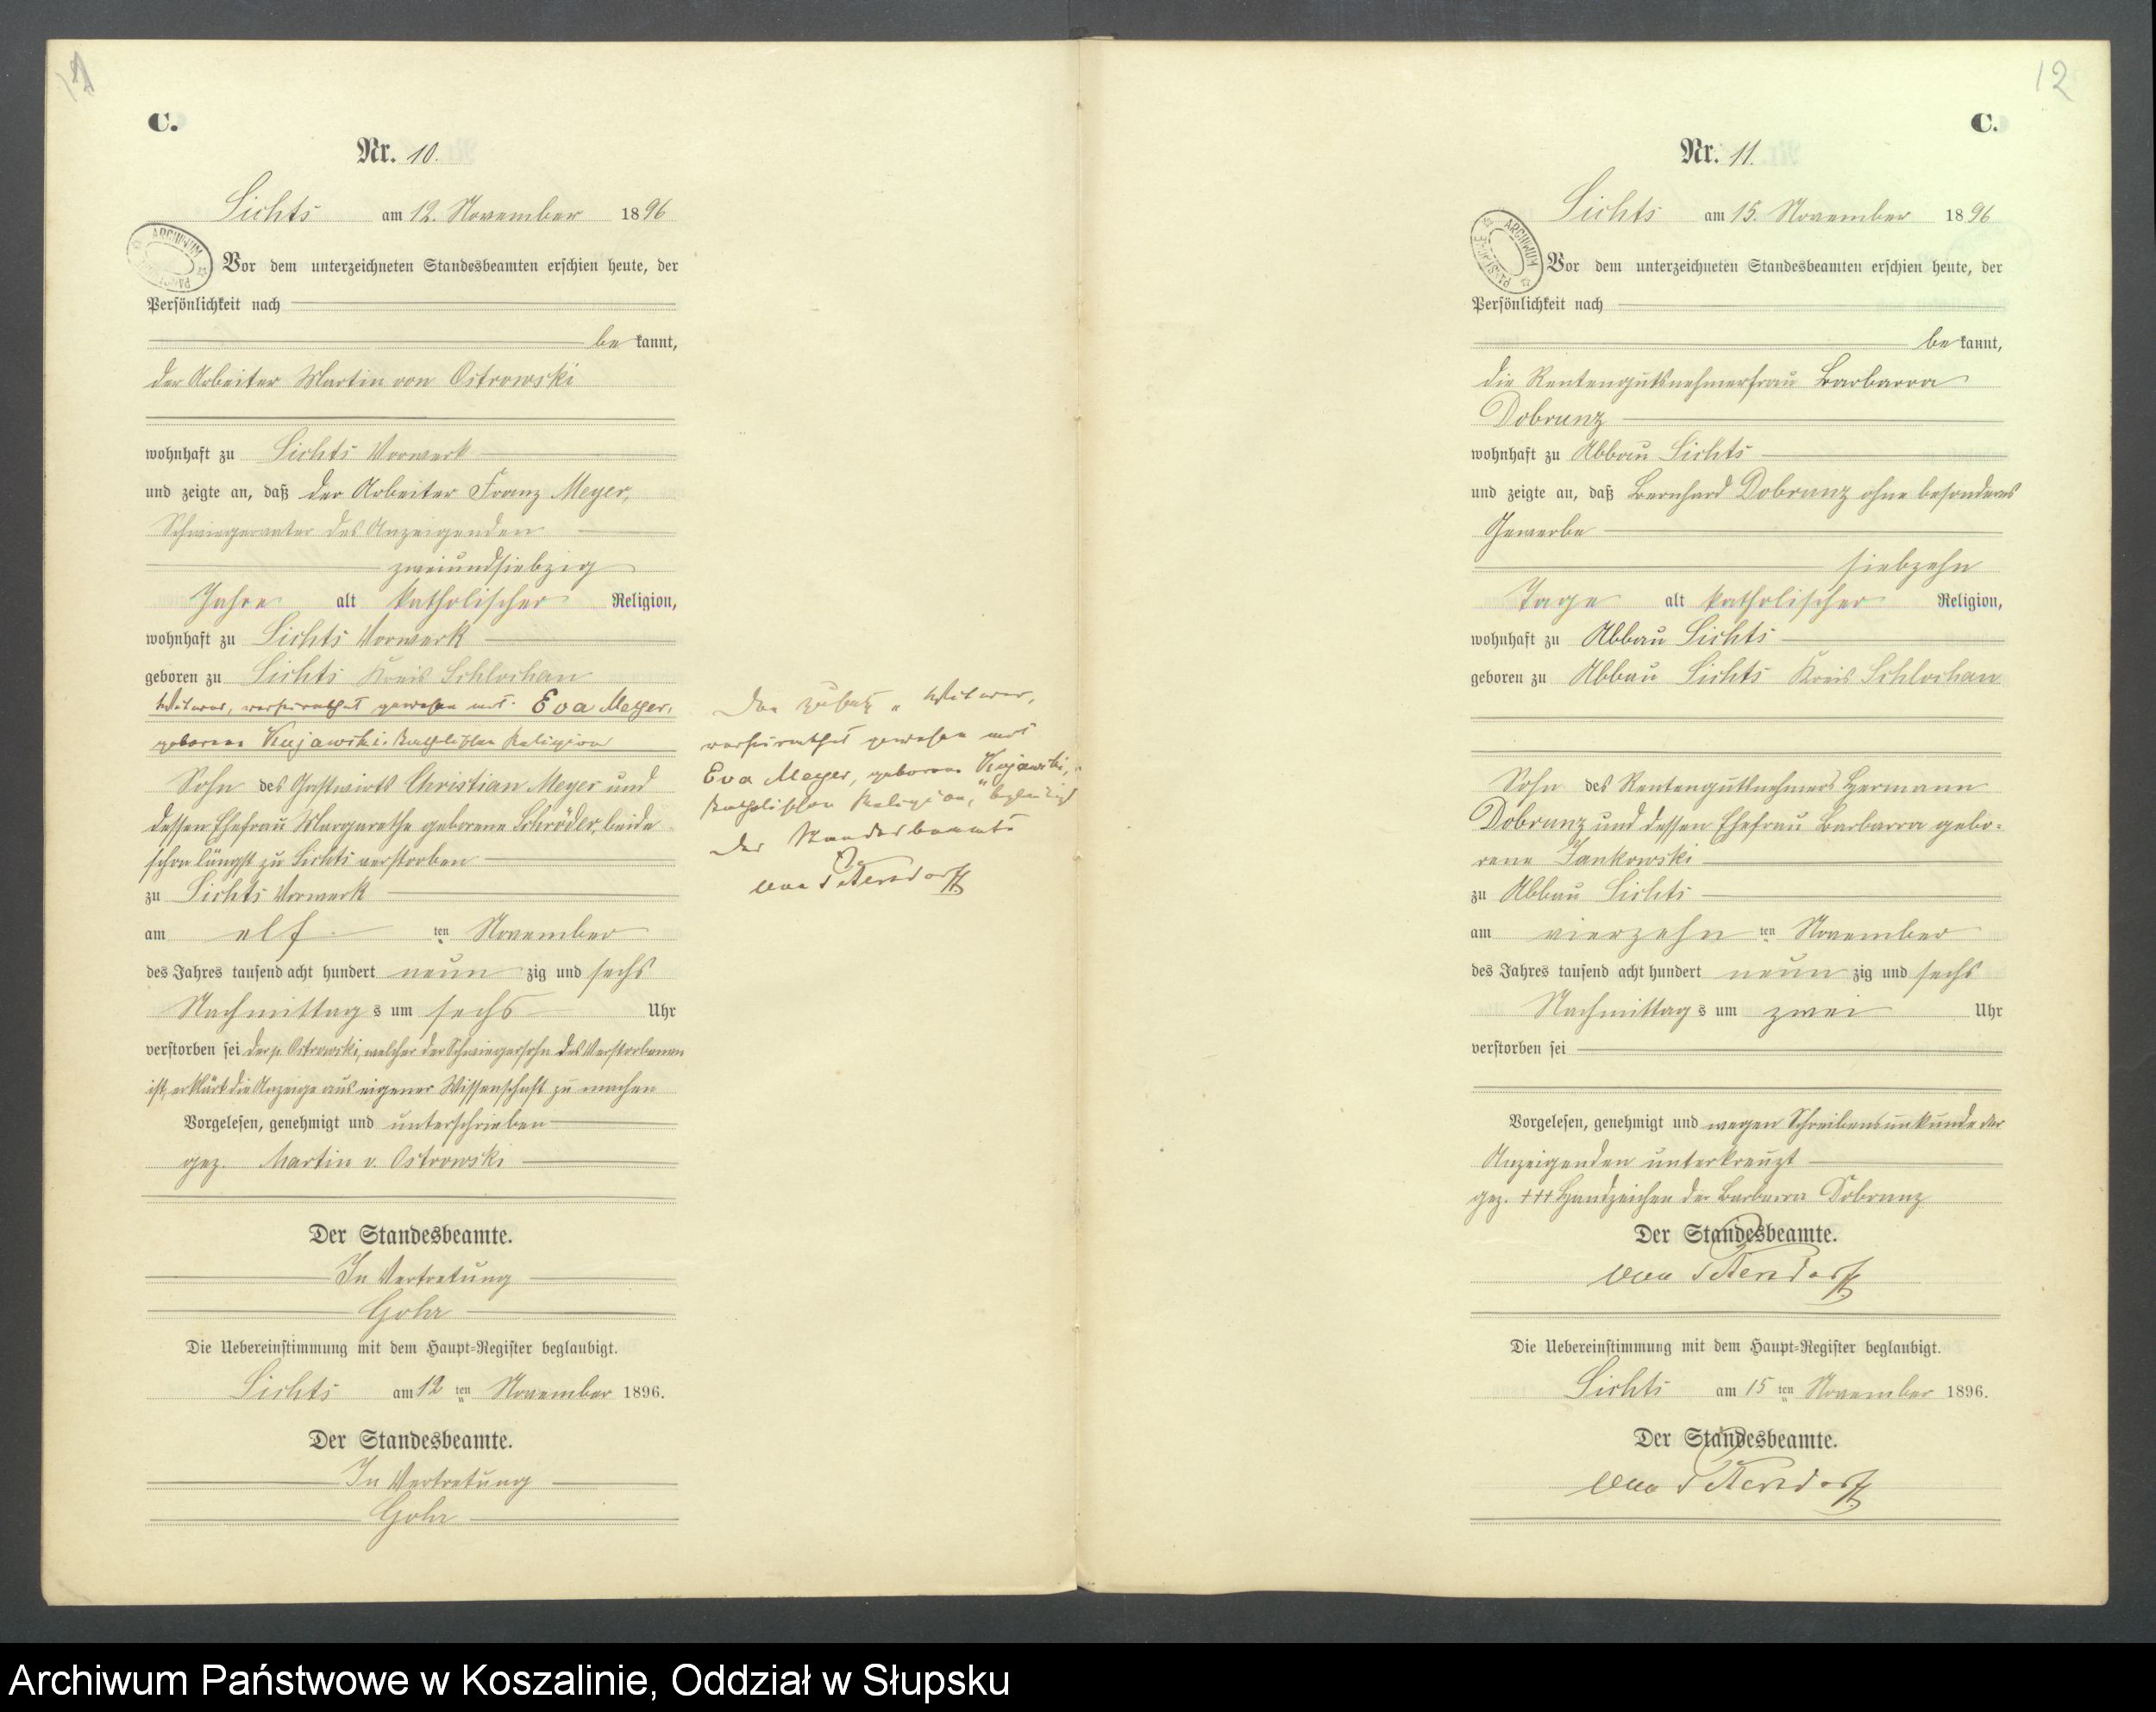 11
C.
Nr. 10.
Lichts am 12. November 1896
ARCHIWUM
Vor dem unterzeichneten Standesbeamten erschien heute, der
Persönlichkeit nach
bekannt,
der Arbeiter Martin von Ostrowski
wohnhaft zu Lichts Vorwerk
und zeigte an, daß der Arbeiter Franz Meyer,
Schwiegervater des Anzeigenden
zweiundsiebzig
Jahre alt katholischer Religion,
wohnhaft zu Lichts Vorwerk
geboren zu Lichts Kreis Schlochau
Witwer, verheirathet gewesen mit Eva Meyer,
geborene Kujawski. katholischer Religion
Sohn des Gastwirts Christian Meyer und
dessen Ehefrau Margarethe geborene Schröder, beide
schon längst zu Lichts verstorben
zu Lichts Vorwerk
am elf ten November
des Jahres tausend acht hundert neun zig und sechs
Nachmittags um sechs Uhr
verstorben sei der p. Ostrowski, welcher der Schwiegersohn des Verstorbenen
ist, erklärt die Anzeige aus eigener Wissenschaft zu machen
Vorgelesen, genehmigt und unterschrieben
gez. Martin v. Ostrowski
Der Standesbeamte.
In Vertretung
Gohr
Die Uebereinstimmung mit dem Haupt-Register beglaubigt.
Lichts am 12 ten November 1896.
Der Standesbeamte.
In Vertretung
Gohr
Der Zusatz „Witwer,
verheirathet gewesen mit
Eva Meyer, geborene Kujawski,
katholischer Religion," beglaubigt
Der Standesbeamte
von Petersdorff
12
C.
Nr. 11.
Lichts am 15. November 1896
ARCHIWUM
Vor dem unterzeichneten Standesbeamten erschien heute, der
Persönlichkeit nach
bekannt,
die Rentengutsnehmerfrau Barbarra
Dobrunz
wohnhaft zu Abbau Lichts
und zeigte an, daß Bernhard Dobrunz ohne besonderes
Gewerbe
siebzehn
Tage alt katholischer Religion,
wohnhaft zu Abbau Lichts
geboren zu Abbau Lichts Kreis Schlochau
Sohn des Rentengutnehmers Hermann
Dobrunz und dessen Ehefrau Barbarra gebo-
rene Jankowski
zu Abbau Lichts
am vierzehn ten November
des Jahres tausend acht hundert neun zig und sechs
Nachmittags um zwei Uhr
verstorben sei
Vorgelesen, genehmigt und wegen Schreibensunkunde der
Anzeigenden unterkreuzt
gez. +++ Handzeichen der Barbarra Dobrunz
Der Standesbeamte.
von Petersdorff
Die Uebereinstimmung mit dem Haupt-Register beglaubigt.
Lichts am 15 ten November 1896.
Der Standesbeamte.
von Petersdorff
Archiwum Państwowe w Koszalinie, Oddział w Słupsku